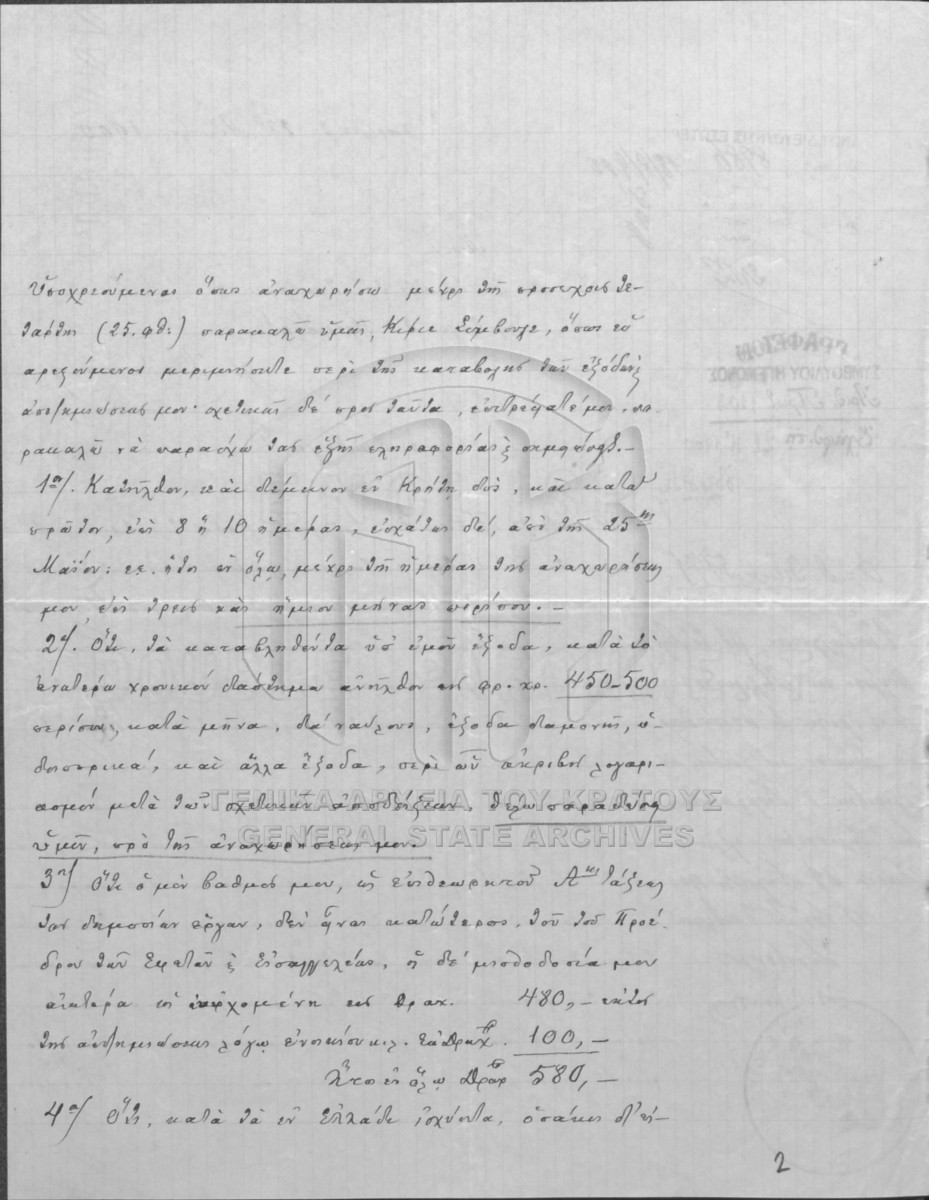 Ὑποχρεούμενος ὅπως ἀναχωρήσω μέχρι τῆς προσεχοῦς Τε-
τάρτης (25. φθ:) παρακαλῶ ὑμᾶς, Κύριε Σύμβουλε, ὅπως εὐ
αρεσούμενος μεριμνήσητε περὶ τῆς καταβολῆς τῶν ἐξόδων
ἀποζημιώσεώς μου· σχετικῶς δέ πρὸς ταῦτα, ἐπιτρέψατέ μοι, πα
ρακαλῶ νὰ παράσχω τὰς ἑξῆς πληροφορίας
1ον/. Κατῆλθον, καὶ διέμεινον ἐν Κρήτῃ δὶς, καὶ κατὰ
πρῶτον, ἐπὶ 8 ἢ 10 ἡμέρας, ἐσχάτως δέ, ἀπὸ τῆς 25ης
Μαΐου: ἤτοι ἐν ὅλῳ, μέχρι τῆς ἡμέρας τῆς ἀναχωρήσεώς
μου, ἐπὶ τρεῖς καὶ ἥμισυ μῆνας περίπου. –
2ον/. Ὅτι, τὰ καταβληθέντα ὑπ' ἐμοῦ ἔξοδα, κατὰ τὸ
ἀνωτέρω χρονικόν διάστημα ἀνῆλθον εἰς φρ. χρ. 450–500
περίπου, κατὰ μῆνα, διὰ ναύλους, ἔξοδα διαμονῆς, ὁ-
δοιπορικά, καὶ ἄλλα ἔξοδα, περὶ ὧν ἀκριβῆ λογαρι-
ασμόν μετὰ τῶν σχετικῶν ἀποδείξεων, θέλω παραδώσῃ
ὑμῖν, πρὸ τῆς ἀναχωρήσεώς μου.
3ον/ Ὅτι ὁ μὲν βαθμός μου, ὡς ἐπιθεωρητοῦ Αης τάξεως
τῶν δημοσίων ἔργων, δὲν εἶναι κατώτερος, τοῦ τοῦ Προέ-
δρου τῶν Ἐφετῶν ἢ Εἰσαγγελέως, ἡ δὲ μισθοδοσία μου
ἀνωτέρα ὡς ἀνερχομένη εἰς Δραχ. 480,– ἐκτὸς
τῆς ἀποζημιώσεως λόγῳ ἐνοικίου κ.λ. ἐκ Δραχ. 100,–
Ἤτοι ἐν ὅλῳ Δραχ 580,–
4ον/ Ὅτι, κατὰ τὰ ἐν Ἑλλάδι ἰσχύοντα, ὁσάκις
2
ΓΕΝΙΚΑ ΑΡΧΕΙΑ ΤΟΥ ΚΡΑΤΟΥΣ
GENERAL STATE ARCHIVES